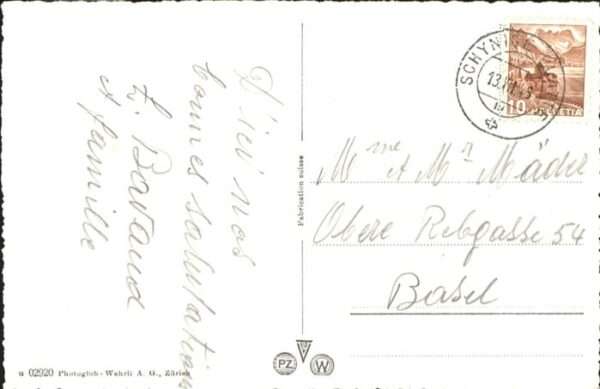 D'ici nos
bonnes salutations
E. Bavaud
et famille
Fabrication suisse
SCHYNIGE
13.VII.43
10
HELVETIA
Mme et Mr Mäder
Obere Rebgasse 54
Basel
PZ
W
u 02920 Photoglob-Wehrli A. G., Zürich